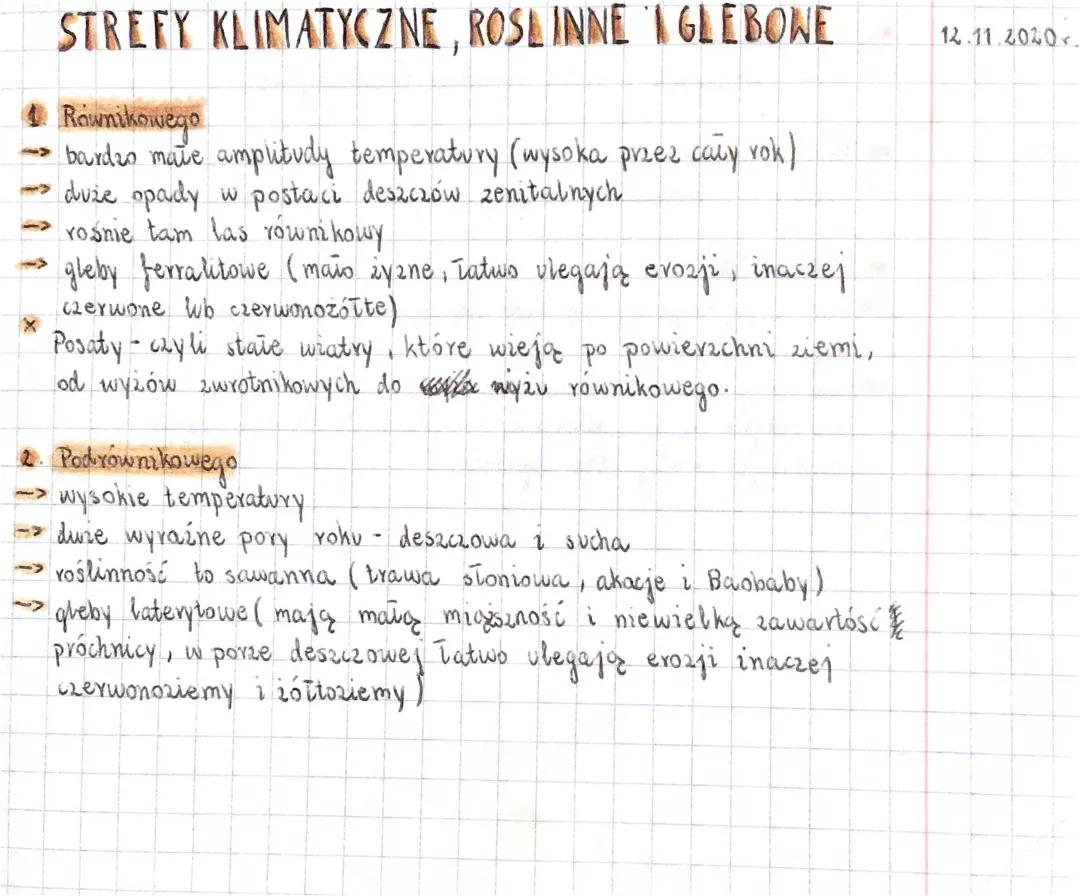 STREFY KLIMATYCZNE, ROŚLINNE I GLEBOWE
12.11.2020r.
1. Równikowego
-> bardzo małe amplitudy temperatury (wysoka przez cały rok)
-> duże opady w postaci deszczów zenitalnych
-> rośnie tam las równikowy
-> gleby ferralitowe (mało żyzne, łatwo ulegają erozji, inaczej
czerwone lub czerwonożółte)
x
Posaty - czyli stałe wiatry, które wieją po powierzchni ziemi,
od wyżów zwrotnikowych do wyżu równikowego.
2. Podrównikowego
-> wysokie temperatury
-> dwie wyraźne pory roku - deszczowa i sucha
-> roślinność to sawanna (trawa słoniowa, akacje i Baobaby)
-> gleby laterytowe (mają małą miąższność i niewielką zawartość
próchnicy, w porze deszczowej łatwo ulegają erozji inaczej
czerwonoziemy i żółtoziemy)